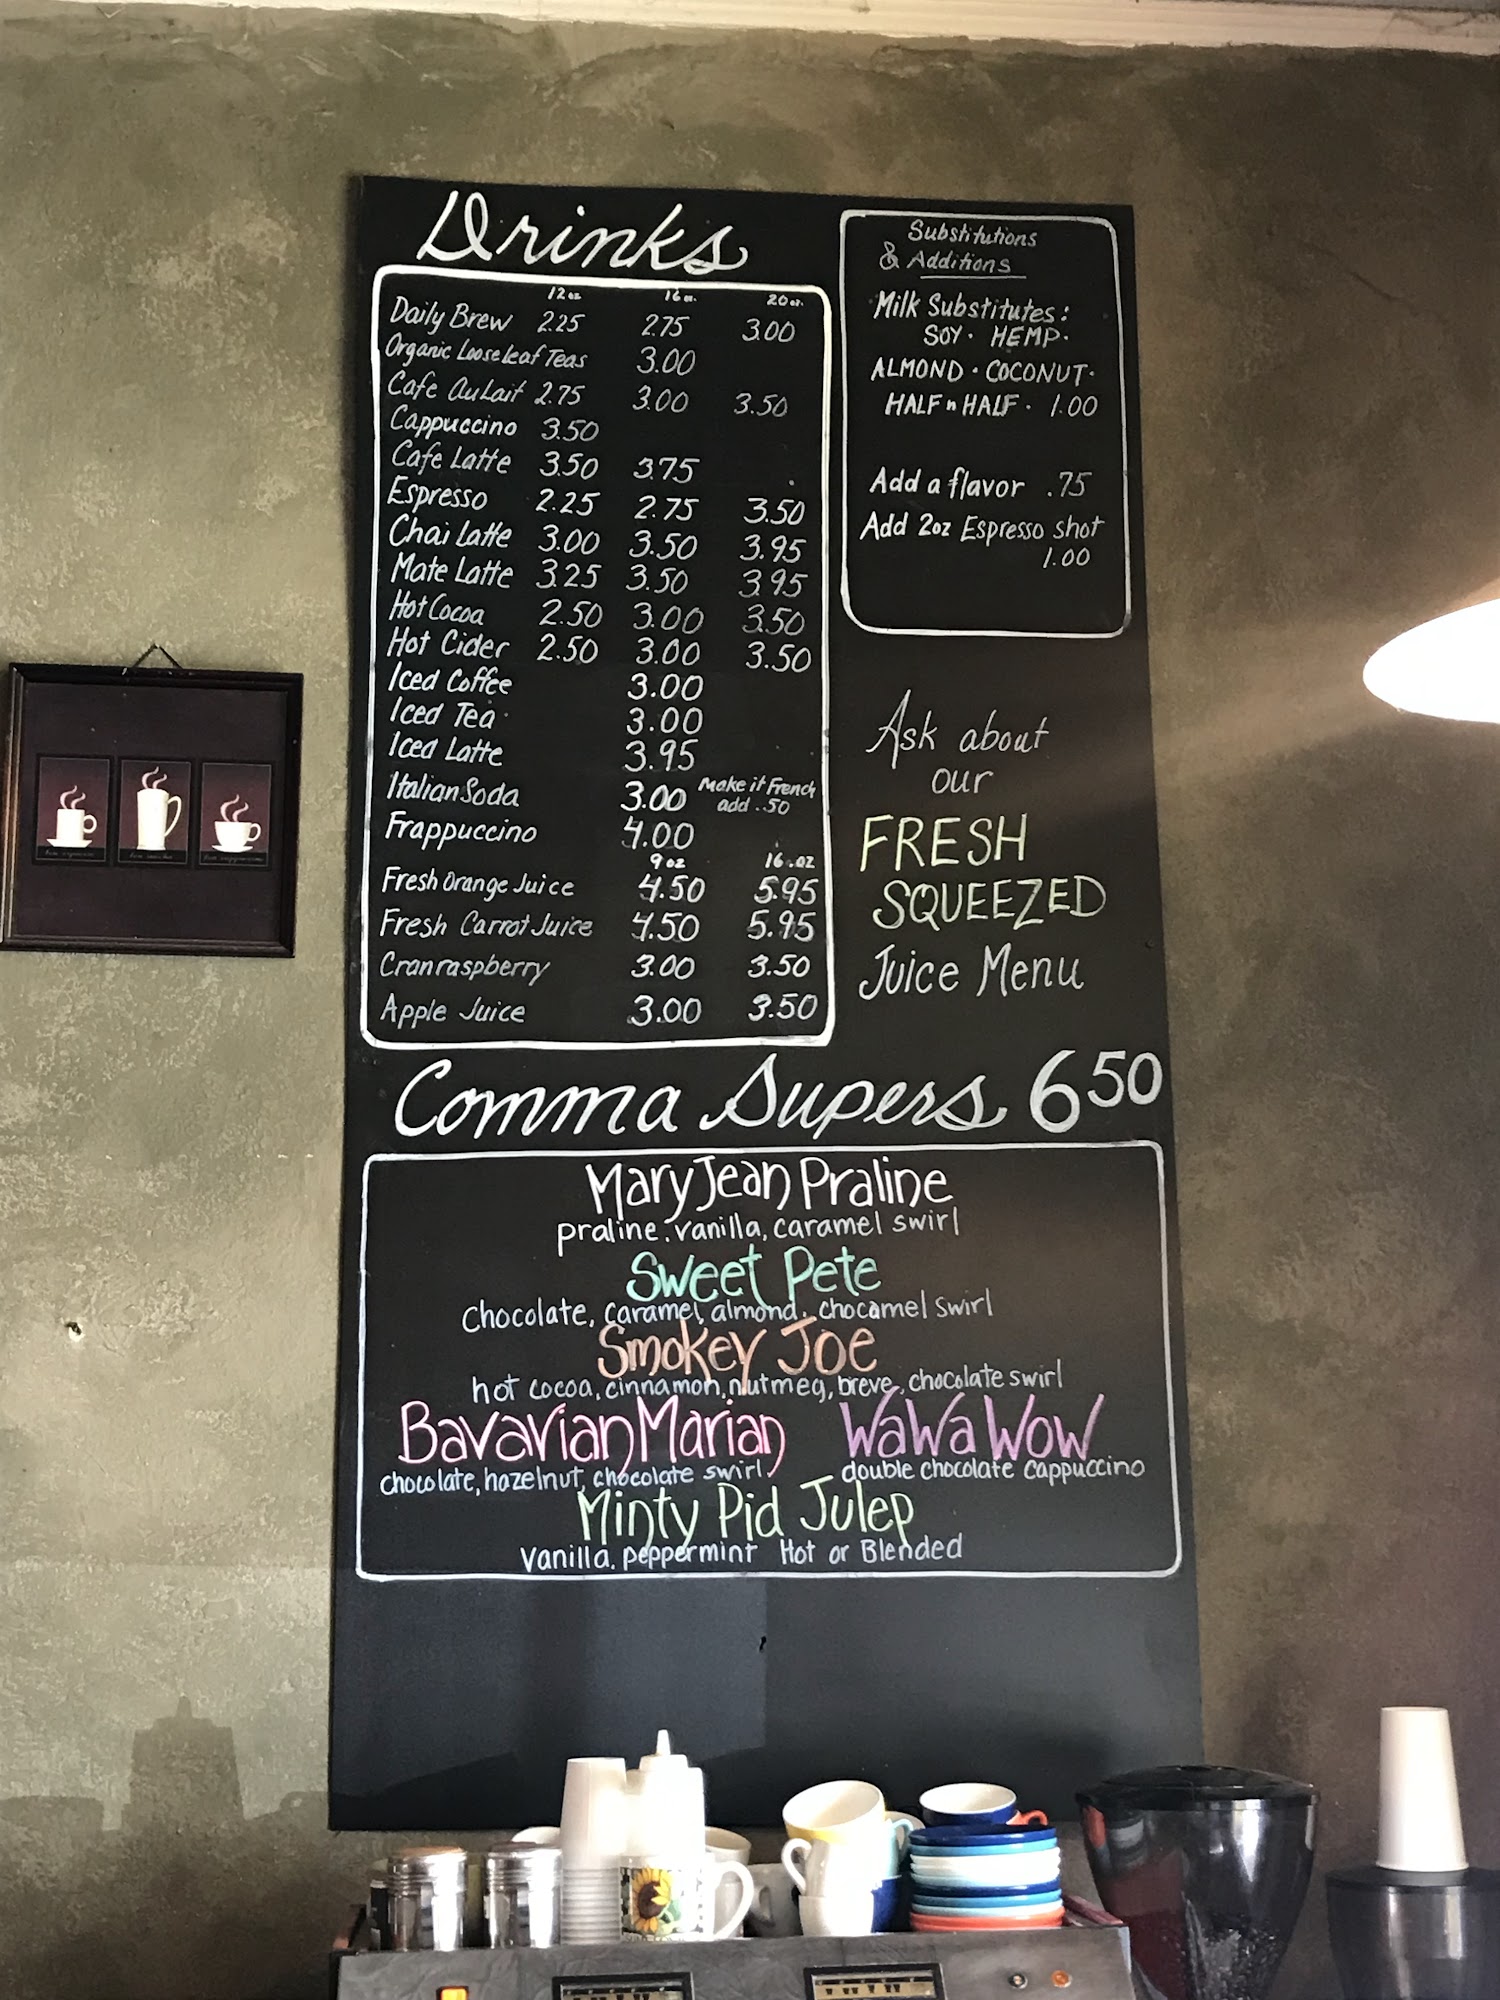 Drinks
12oz 16oz. 20oz.
Daily Brew 2.25 2.75 3.00
Organic Loose Leaf Teas 3.00
Cafe Au Lait 2.75 3.00 3.50
Cappuccino 3.50
Cafe Latte 3.50 3.75
Espresso 2.25 2.75 3.50
Chai Latte 3.00 3.50 3.95
Mate Latte 3.25 3.50 3.95
Hot Cocoa 2.50 3.00 3.50
Hot Cider 2.50 3.00 3.50
Iced Coffee 3.00
Iced Tea 3.00
Iced Latte 3.95
Italian Soda 3.00 Make it French
add .50
Frappuccino 4.00
9oz 16.oz
Fresh Orange Juice 4.50 5.95
Fresh Carrot Juice 4.50 5.95
Cranraspberry 3.00 3.50
Apple Juice 3.00 3.50
Substitutions
& Additions
Milk Substitutes:
SOY · HEMP ·
ALMOND · COCONUT ·
HALF n HALF · 1.00
Add a flavor .75
Add 2oz Espresso shot
1.00
Ask about
our
FRESH
SQUEEZED
Juice Menu
Comma Supers 6 50
Mary Jean Praline
praline, vanilla, caramel swirl
Sweet Pete
Chocolate, caramel, almond, chocamel swirl
Smokey Joe
hot cocoa, cinnamon, nutmeg, breve, chocolate swirl
Bavavian Marian
chocolate, hazelnut, chocolate swirl
WaWa Wow
double chocolate cappuccino
Minty Pid Julep
vanilla, peppermint Hot or Blended